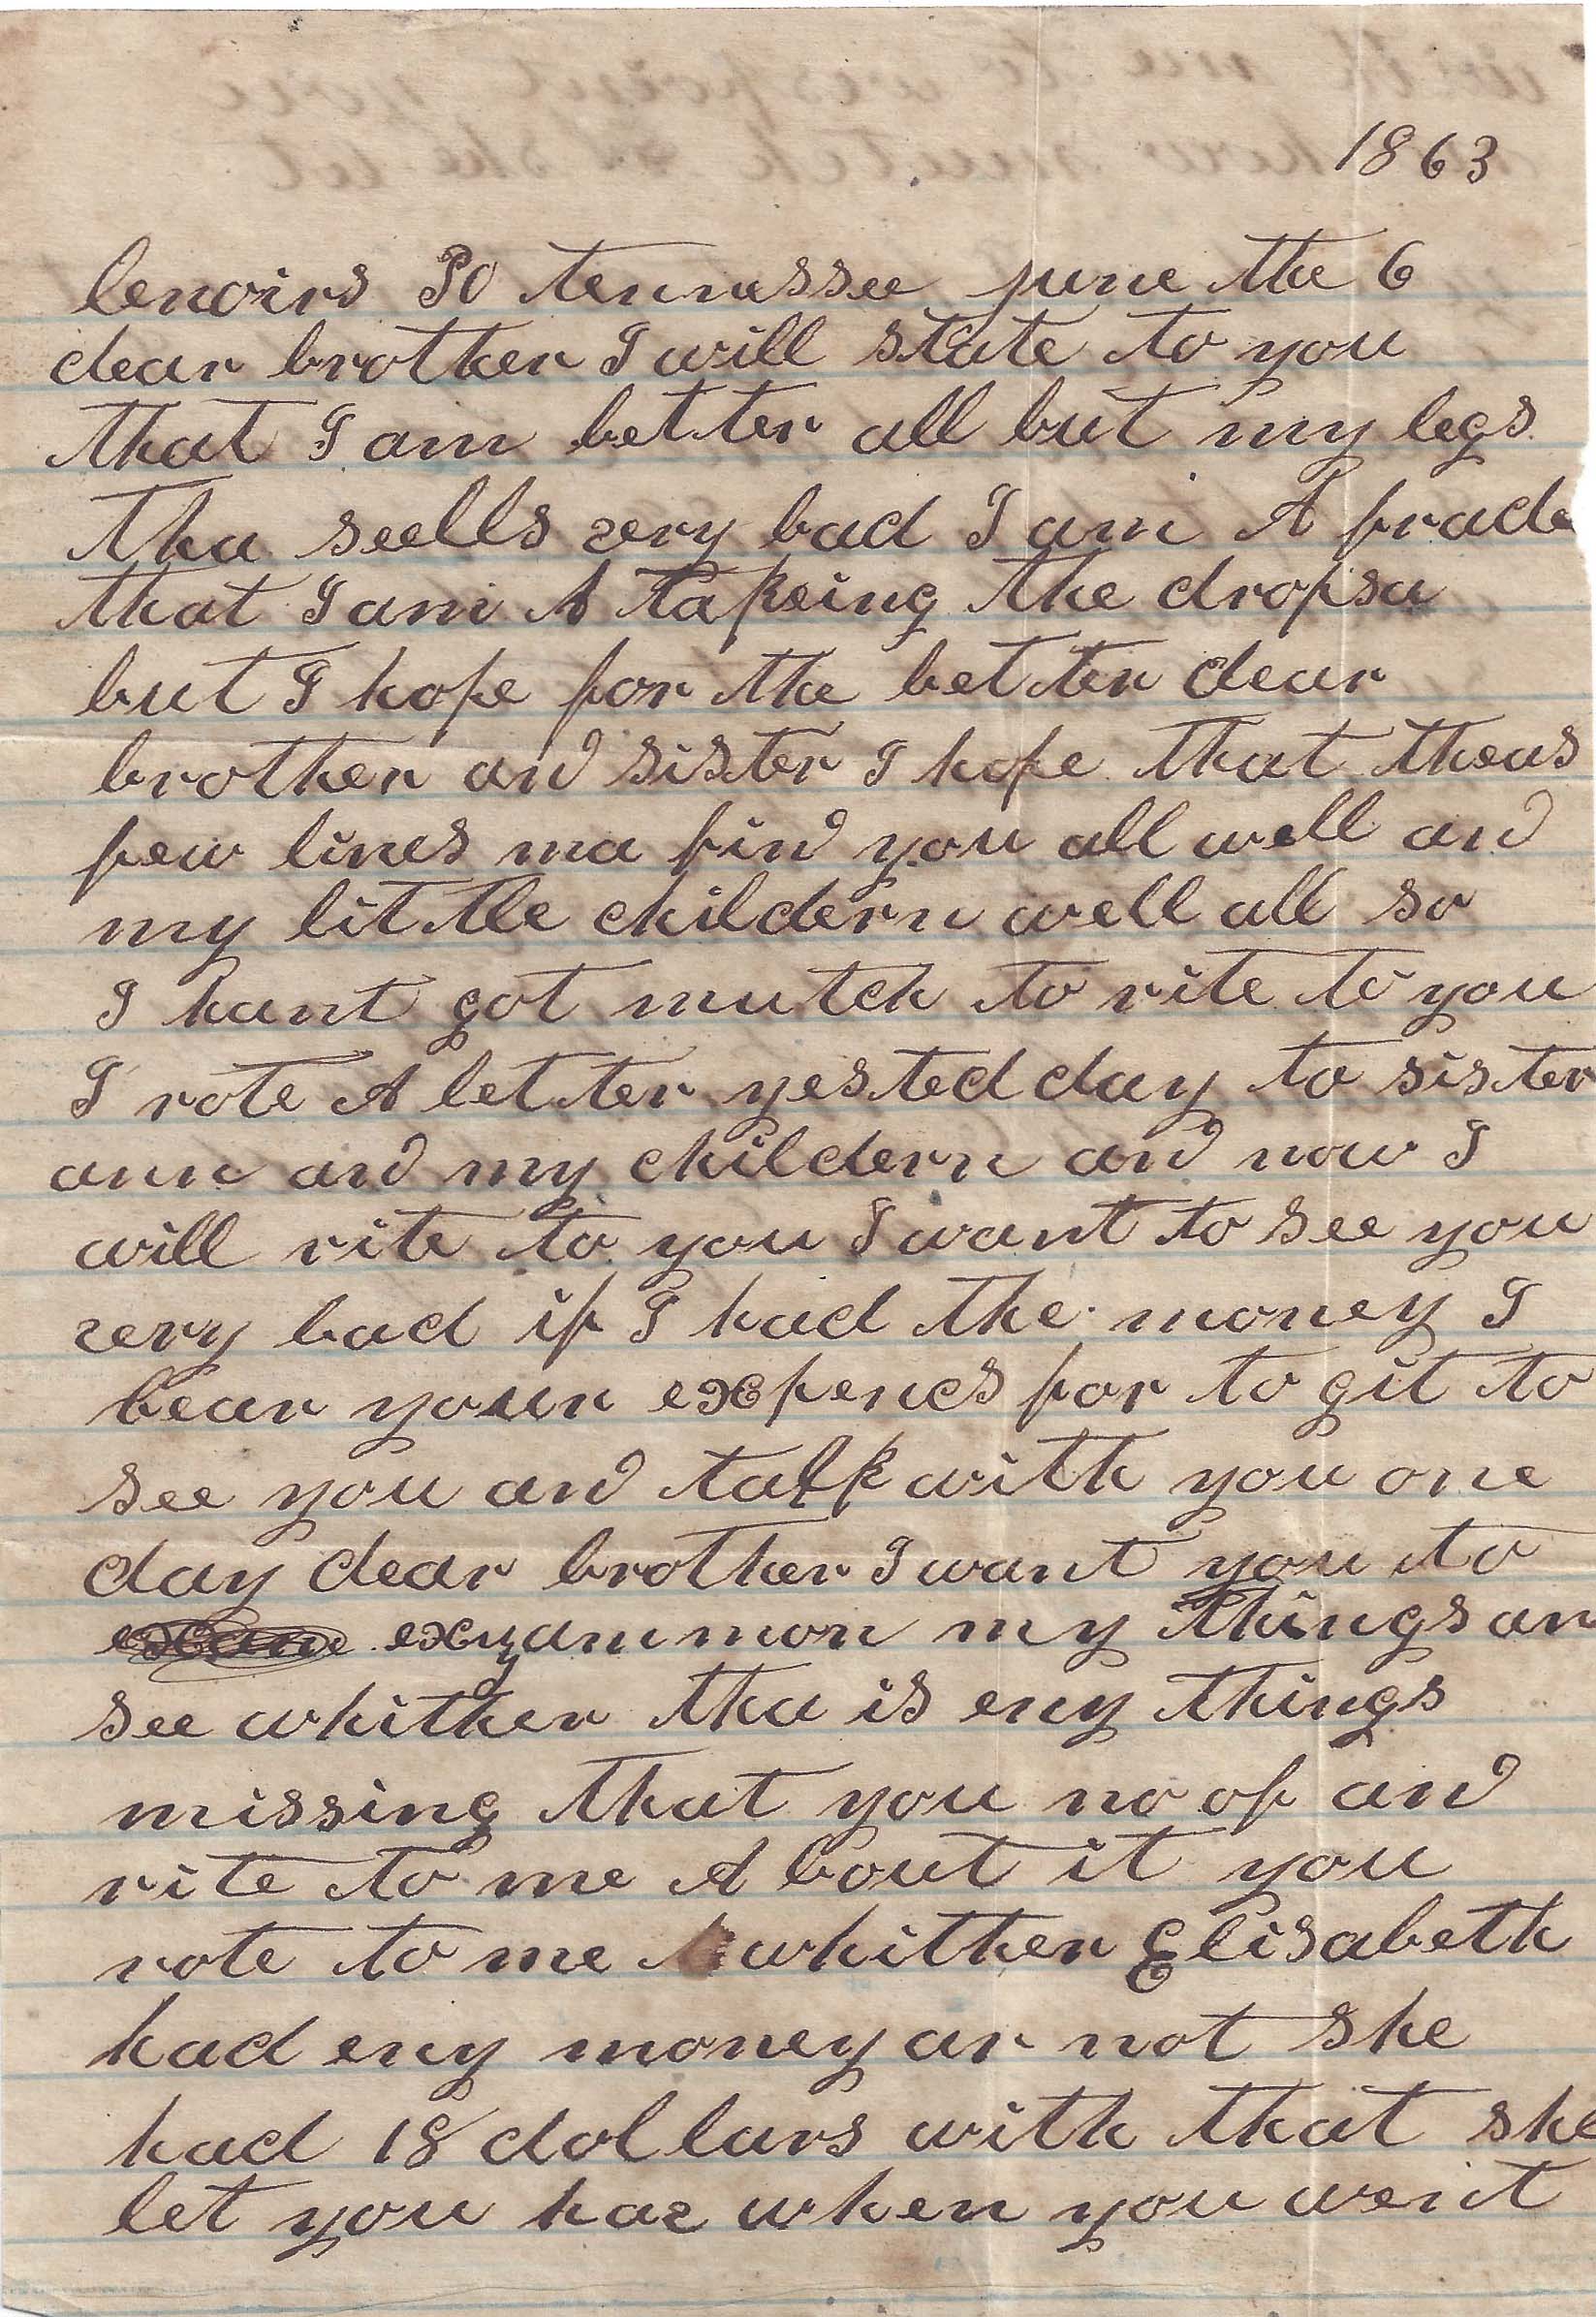 1863
lenoirs PO tennessee june the 6
dear brother I will state to you
that I am better all but my legs
tha swells very bad I am A frade
that I am A takeing the dropsa
but I hope for the better dear
brother and sister I hope that theas
few lines ma find you all well and
my little childern well all so
I hant got mutch to rite to you
I rote A letter yestedday to sister
ann and my childern and now I
will rite to you I want to see you
very bad if I had the money I
bear your expencs for to git to
see you and talk with you one
day dear brother I want you to
exyammon my things an
see whither tha is eny things
missing that you no of and
rite to me A bout it you
rote to me whither Elisabeth
had eny money ar not she
had 18 dollars with that she
let you hav when you went